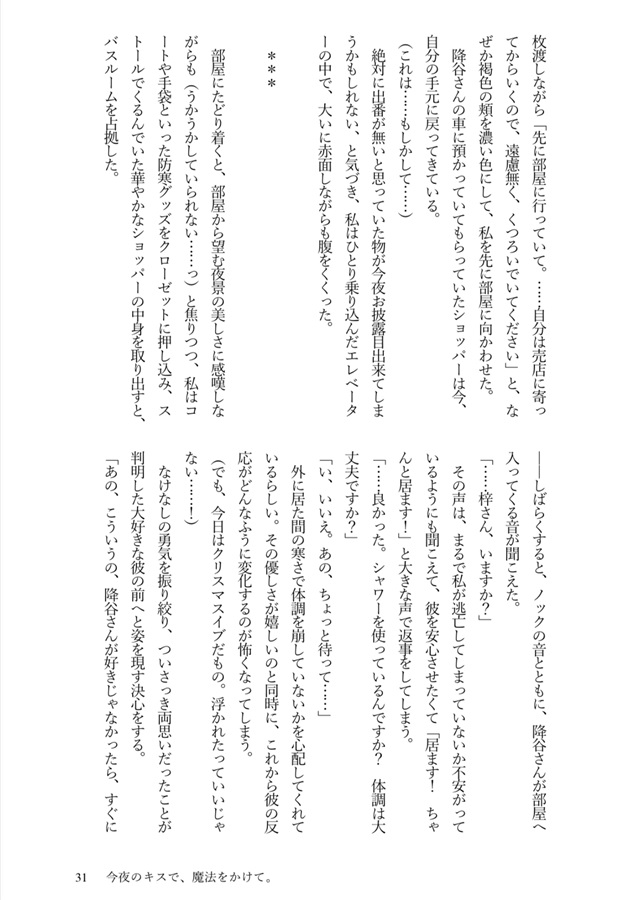 枚渡しながら「先に部屋に行っていて。……自分は売店に寄っ
てからいくので、遠慮無く、くつろいでいてください」と、な
ぜか褐色の頬を濃い色にして、私を先に部屋に向かわせた。
降谷さんの車に預かっていてもらっていたショッパーは今、
自分の手元に戻ってきている。
(これは……もしかして……)
絶対に出番が無いと思っていた物が今夜お披露目出来てしま
うかもしれない、と気づき、私はひとり乗り込んだエレベータ
ーの中で、大いに赤面しながらも腹をくくった。
＊＊＊
部屋にたどり着くと、部屋から望む夜景の美しさに感嘆しな
がらも(うかうかしていられない……っ)と焦りつつ、私はコ
ートや手袋といった防寒グッズをクローゼットに押し込み、ス
トールでくるんでいた華やかなショッパーの中身を取り出すと、
バスルームを占拠した。
――しばらくすると、ノックの音とともに、降谷さんが部屋へ
入ってくる音が聞こえた。
「……梓さん、いますか？」
その声は、まるで私が逃亡してしまっていないか不安がって
いるようにも聞こえて、彼を安心させたくて「居ます！　ちゃ
んと居ます！」と大きな声で返事をしてしまう。
「……良かった。シャワーを使っているんですか？　体調は大
丈夫ですか？」
「い、いいえ。あの、ちょっと待って……」
外に居た間の寒さで体調を崩していないかを心配してくれて
いるらしい。その優しさが嬉しいのと同時に、これから彼の反
応がどんなふうに変化するのが怖くなってしまう。
(でも、今日はクリスマスイブだもの。浮かれたっていいじゃ
ない……！)
なけなしの勇気を振り絞り、ついさっき両思いだったことが
判明した大好きな彼の前へと姿を現す決心をする。
「あの、こういうの、降谷さんが好きじゃなかったら、すぐに
31　今夜のキスで、魔法をかけて。